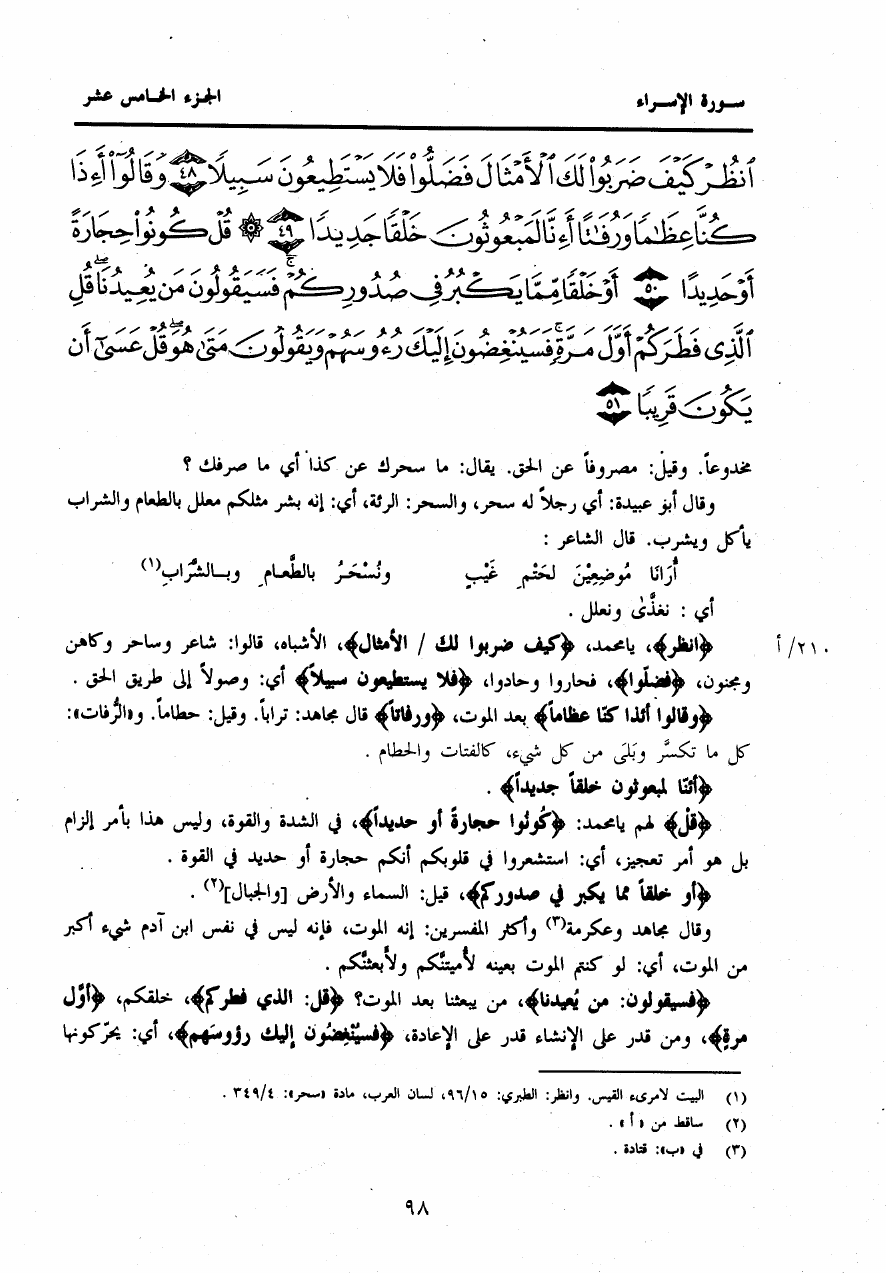 سورة الإسراء الجزء الخامس عشر
ٱنظُرْ كَيْفَ ضَرَبُوا۟ لَكَ ٱلْأَمْثَالَ فَضَلُّوا۟ فَلَا يَسْتَطِيعُونَ سَبِيلًا ٤٨ وَقَالُوٓا۟ أَءِذَا
كُنَّا عِظَٰمًا وَرُفَٰتًا أَءِنَّا لَمَبْعُوثُونَ خَلْقًا جَدِيدًا ٤٩ ۞ قُلْ كُونُوا۟ حِجَارَةً
أَوْ حَدِيدًا ٥٠ أَوْ خَلْقًا مِّمَّا يَكْبُرُ فِى صُدُورِكُمْ ۚ فَسَيَقُولُونَ مَن يُعِيدُنَا ۖ قُلِ
ٱلَّذِى فَطَرَكُمْ أَوَّلَ مَرَّةٍ ۚ فَسَيُنْغِضُونَ إِلَيْكَ رُءُوسَهُمْ وَيَقُولُونَ مَتَىٰ هُوَ ۖ قُلْ عَسَىٰٓ أَن
يَكُونَ قَرِيبًا ٥١
مخدوعاً. وقيل: مصروفاً عن الحق. يقال: ما سحرك عن كذا أي ما صرفك ؟
وقال أبو عبيدة: أي رجلاً له سحر، والسحر: الرئة، أي: إنه بشر مثلكم معلل بالطعام والشراب
يأكل ويشرب. قال الشاعر :
أُرَانَا مُوضِعِيْنَ لحَتْمِ غَيْبٍ ونُسْحَرُ بالطَّعـامِ وبـالشَّرابِ(١)
أي : نغذَّى ونعلل .
﴿انظر﴾، يامحمد، ﴿كيف ضربوا لك / الأمثال﴾، الأشباه، قالوا: شاعر وساحر وكاهن ٢١٠/أ
ومجنون، ﴿فضلّوا﴾، فحاروا وحادوا، ﴿فلا يستطيعون سبيلاً﴾ أي: وصولاً إلى طريق الحق .
﴿وقالوا أئذا كنّا عظاماً﴾ بعد الموت، ﴿ورفاتاً﴾ قال مجاهد: تراباً. وقيل: حطاماً. و«الرُّفات»:
كل ما تكسَّر وبَلَى من كل شيء، كالفتات والحطام .
﴿أئنّا لمبعوثون خلقاً جديداً﴾ .
﴿قلْ﴾ لهم يامحمد: ﴿كُونُوا حجارةً أو حديداً﴾، في الشدة والقوة، وليس هذا بأمر إلزام
بل هو أمر تعجيز، أي: استشعروا في قلوبكم أنكم حجارة أو حديد في القوة .
﴿أو خلقاً مما يكبر في صدوركم﴾، قيل: السماء والأرض [والجبال](٢) .
وقال مجاهد وعكرمة(٣) وأكثر المفسرين: إنه الموت، فإنه ليس في نفس ابن آدم شيء أكبر
من الموت، أي: لو كنتم الموت بعينه لأميتنَّكم ولأبعثنَّكم .
﴿فسيقولون: من يُعيدنا﴾، من يبعثنا بعد الموت؟ ﴿قل: الذي فطركم﴾، خلقكم، ﴿أوَّل
مرةٍ﴾، ومن قدر على الإنشاء قدر على الإعادة، ﴿فسيُنْغِضُون إليك رؤوسَهم﴾، أي: يحرّكونها
(١) البيت لامرىء القيس. وانظر: الطبري: ٩٦/١٥، لسان العرب، مادة «سحر»: ٣٤٩/٤ .
(٢) ساقط من «أ» .
(٣) في «ب»: قتادة .
٩٨